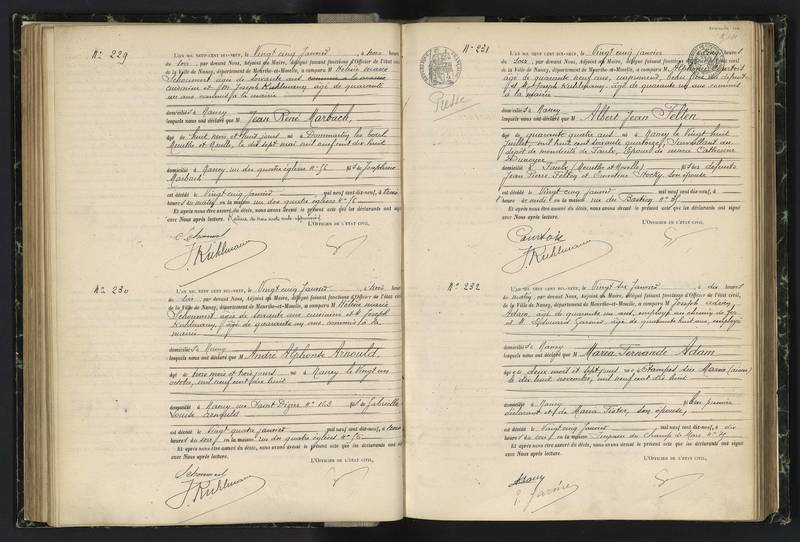 N° 229
L'AN MIL NEUF CENT DIX-NEUF, le Vingt cinq Janvier à trois heures
du soir, par devant Nous, Adjoint au Maire, délégué faisant fonctions d'Officier de l'état civil
de la Ville de Nancy, département de Meurthe-et-Moselle, a comparu M Hélène marie
Schoumert âgée de soixante ans
cuisinière et Joseph Kuhlmann, âgé de quarante
un ans commis à la mairie
domiciliés à Nancy
lequels nous ont déclaré que Jean René Marbach,
âgé de huit mois et huit jours né à Dommartin
Meurthe et Moselle, le dix sept mai mil neuf cent dix huit
domicilié à Nancy rue des quatre églises n° 56 fils de Joséphine
Marbach
est décédé le Vingt cinq janvier mil neuf cent dix-neuf, à trois
heures du matin en la maison rue des quatre églises n° 56
Et après nous être assuré du décès, nous avons dressé le présent acte que les déclarants ont signé
avec Nous après lecture.
L'OFFICIER DE L'ÉTAT CIVIL,
Schoumert
J. Kuhlmann
N° 230
L'AN MIL NEUF CENT DIX-NEUF, le Vingt cinq Janvier à trois heures
du soir, par devant Nous, Adjoint au Maire, délégué faisant fonctions d'Officier de l'état civil
de la Ville de Nancy, département de Meurthe-et-Moselle, a comparu M Hélène marie
Schoumert âgée de soixante ans cuisinière et M Joseph
Kuhlmann, âgé de quarante un ans, commis à la
mairie
domiciliés à Nancy
lequels nous ont déclaré que M André Alphonse Arnould,
âgé de trois mois et trois jours né à Nancy le Vingt un
octobre, mil neuf cent dix huit
domicilié à Nancy rue Saint Dizier n° 153 fils de Gabrielle
Louise Arnould
est décédé le Vingt quatre janvier mil neuf cent dix-neuf, à
heures du soir en la maison rue des quatre églises n° 56
Et après nous être assuré du décès, nous avons dressé le présent acte que les déclarants ont signé
avec Nous après lecture.
L'OFFICIER DE L'ÉTAT CIVIL,
Schoumert
J. Kuhlmann
N° 231
Presse
L'AN MIL NEUF CENT DIX-NEUF, le Vingt cinq janvier à cinq heures
du soir, par devant Nous, Adjoint au Maire, délégué faisant fonctions d'Officier de l'état civil
de la Ville de Nancy, département de Meurthe-et-Moselle, a comparu M. Alphonse Courtois
âgé de quarante neuf ans, beau frère du défunt
et M Joseph Kuhlmann, âgé de quarante un ans commis
à la mairie
domiciliés à Nancy
lequels nous ont déclaré que M Albert Jean Felten
âgé de quarante quatre ans né à Nancy le Vingt huit
juillet, mil huit cent soixante quatorze, surveillant au
dépôt de mendicité de Faulx, époux de marie Catherine
domicilié à Faulx (Meurthe et Moselle) fils des défunts
Jean Pierre Felten et Ernestine Hocky, son épouse
est décédé le Vingt cinq janvier mil neuf cent dix-neuf, à
heures en la maison rue du Bastion n° 31
Et après nous être assuré du décès, nous avons dressé le présent acte que les déclarants ont signé
avec Nous après lecture.
L'OFFICIER DE L'ÉTAT CIVIL,
Courtois
J. Kuhlmann
N° 232
L'AN MIL NEUF CENT DIX-NEUF, le Vingt six Janvier à dix heures
du matin, par devant Nous, Adjoint au Maire, délégué faisant fonctions d'Officier de l'état civil
de la Ville de Nancy, département de Meurthe-et-Moselle, a comparu M Joseph
Adam, âgé de quarante un ans, employé au chemin de fer
et M Edouard Garnier, âgé de quarante huit ans, employé
domiciliés à Nancy
lequels nous ont déclaré que M Maria Fernande Adam
âgée de deux mois et sept jours née à Etampes sur Marne (aisne)
le dix huit novembre, mil neuf cent dix huit
domicilié à Nancy fille du premier
déclarant et de Maria son épouse,
est décédé le Vingt cinq Janvier mil neuf cent dix-neuf, à dix
heures du soir en la maison Impasse du champ de Mars n°
Et après nous être assuré du décès, nous avons dressé le présent acte que les déclarants ont signé
avec Nous après lecture.
L'OFFICIER DE L'ÉTAT CIVIL,
Adam